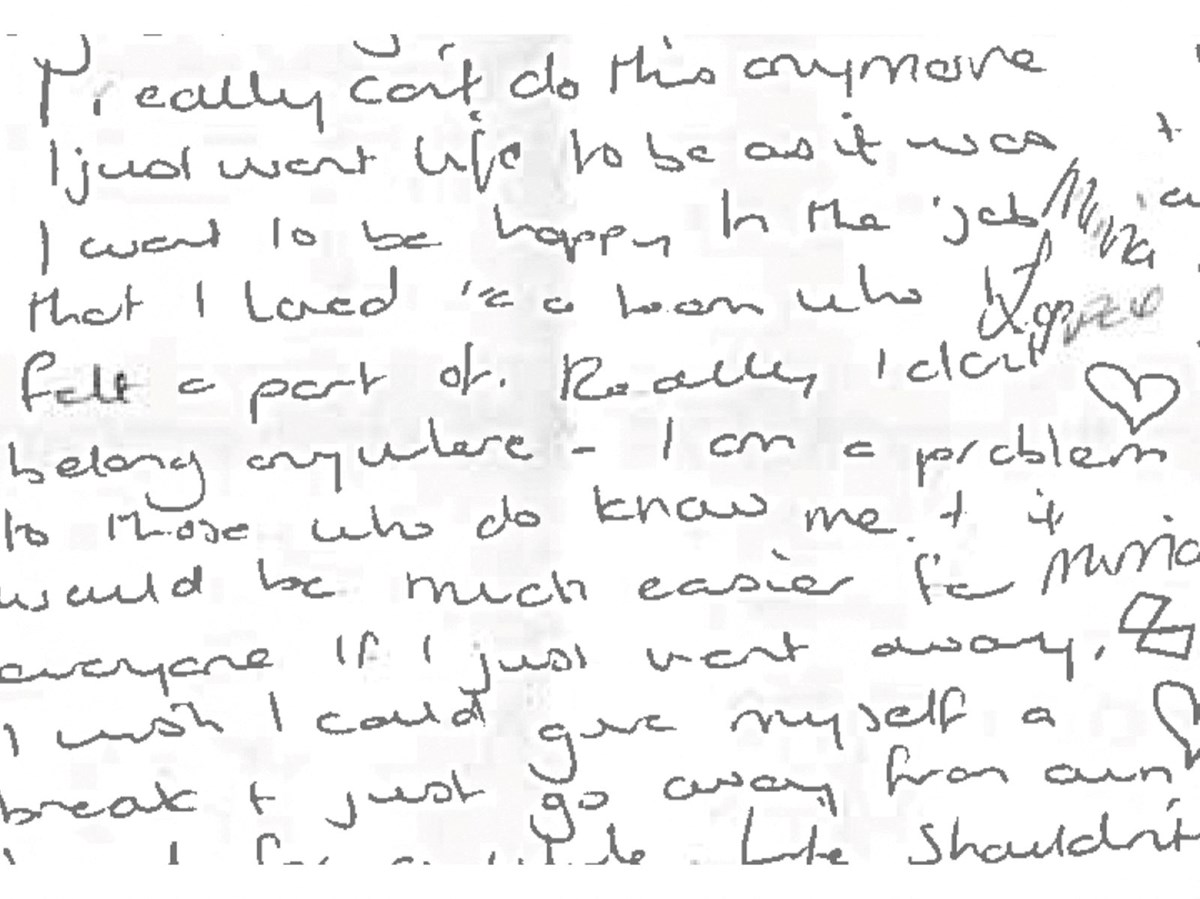 I really can't do this anymore
I just want life to be as it was
I want to be happy In the job
that I loved a team who I
felt a part of. Really I don't
belong anywhere - I am a problem
to those who do know me + it
would be much easier for
everyone If I just went away.
I wish I could give myself a
break + just go away from
for a while. Life Shouldn't